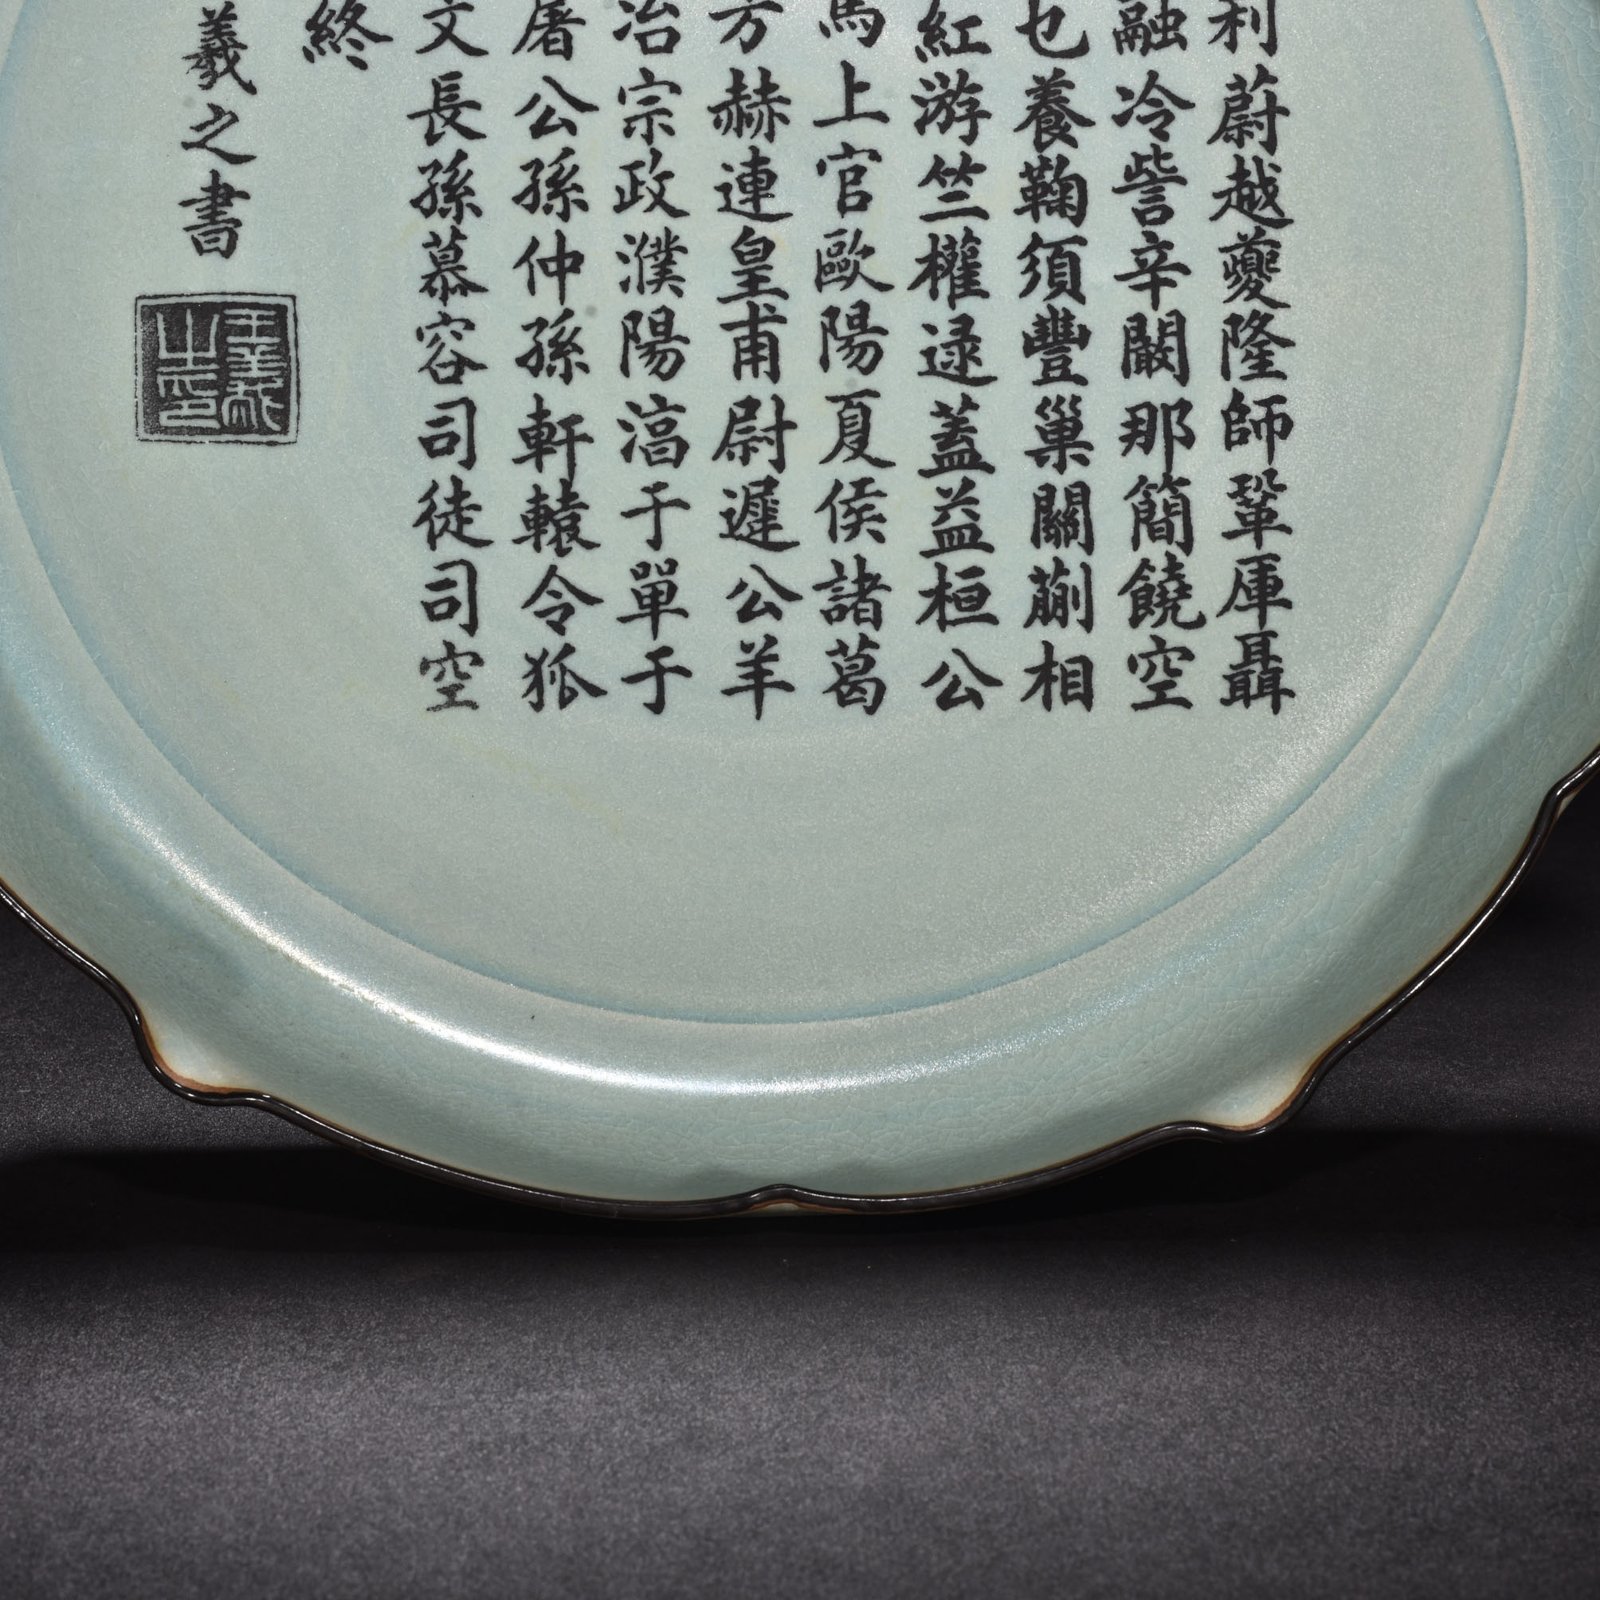 利蔚越夔隆師鞏厙聶
融冷訾辛闞那簡饒空
乜養鞠須豐巢關蒯相
紅游竺權逯蓋益桓公
馬上官歐陽夏侯諸葛
方赫連皇甫尉遲公羊
冶宗政濮陽淓于單于
屠公孫仲孫軒轅令狐
文長孫慕容司徒司空
終
羲之書
王羲之印